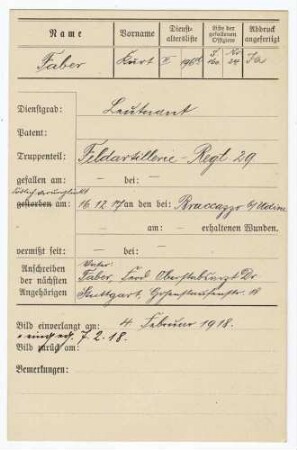 Name Vorname Dienst-altersliste Liste der gefallenen Offiziere Abdruck angefertigt
S. No
Faber Kurt I 24 Ja
Dienstgrad: Leutnant
Patent:
Truppenteil: Feldartillerie-Regt 29
gefallen am: — bei: —
tödlich verunglückt
gestorben am: 16.12.17 an den bei: Bruccazzo b/ Udine
— am: — erhaltenen Wunden.
vermißt seit: — bei: —
Anschreiben Vater:
der nächsten Faber, Ferd Oberstabsarzt Dr
Angehörigen Stuttgart, Hohenstaufenstr. 18
Bild einverlangt am: 4. Februar 1918.
" eingeg. 7.2.18.
Bild zurück am:
Bemerkungen: